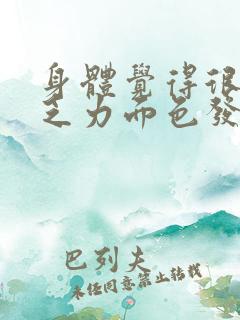 身體覺得很
乏力面色發
巴列夫
未经同意禁止转载